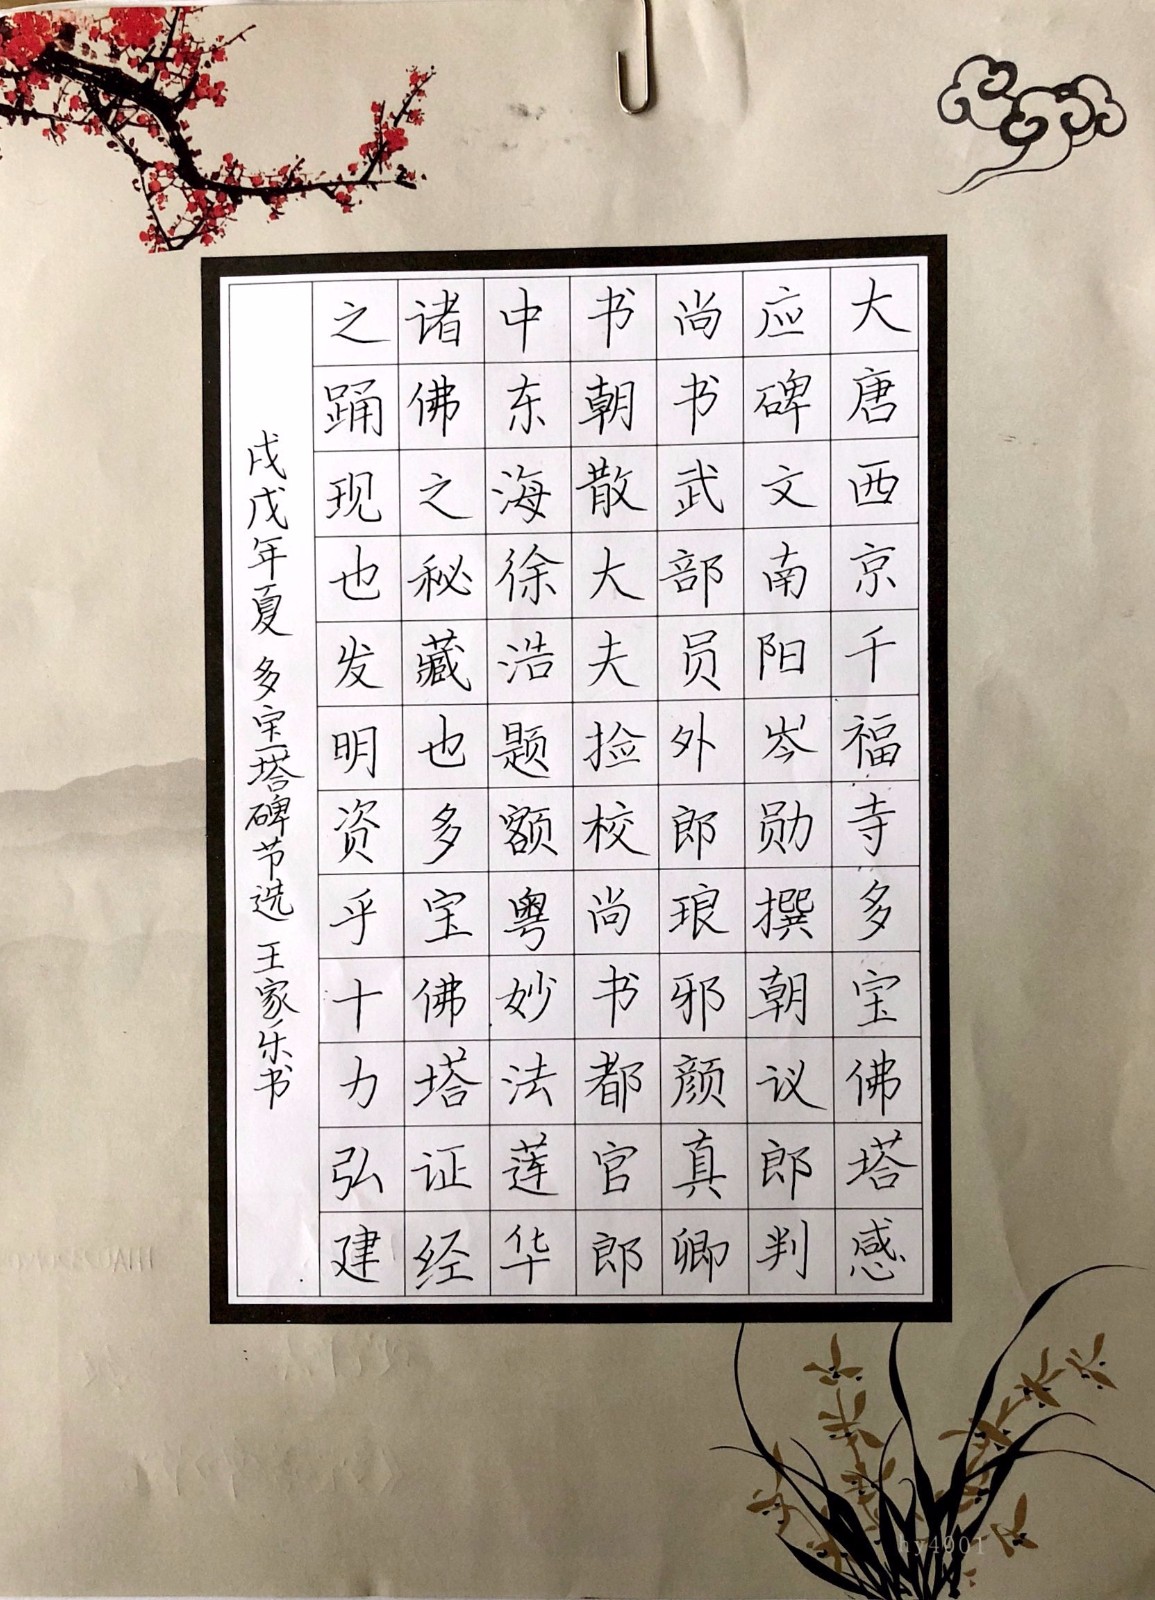 大唐西京千福寺多宝佛塔感
应碑文南阳岑勋撰朝议郎判
尚书武部员外郎琅邪颜真卿
书朝散大夫捡校尚书都官郎
中东海徐浩题额粤妙法莲华
诸佛之秘藏也多宝佛塔证经
之踊现也发明资乎十力弘建
戌戊年夏 多宝塔碑节选 王家乐书
hy4001